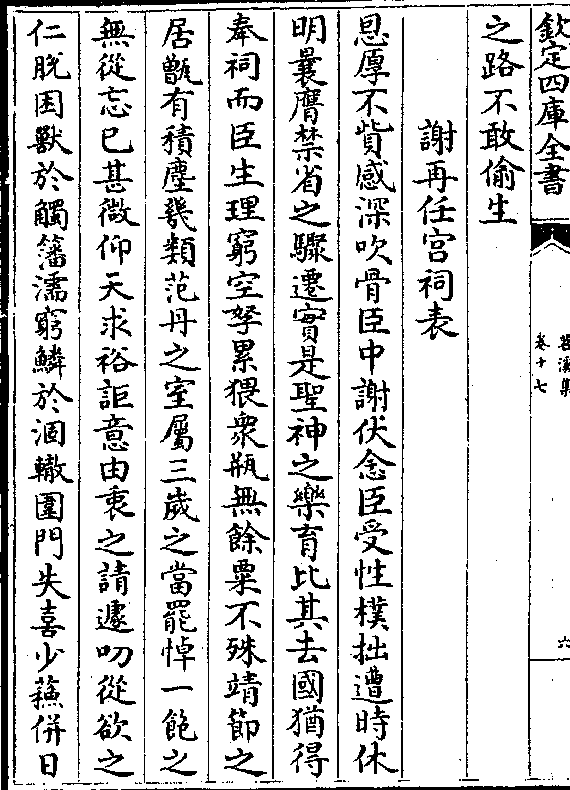 欽定四庫全書
苕溪集
卷十七
六
之路不敢偷生
謝再任宫祠表
恩厚不貲感深吹骨臣中謝伏念臣受性樸拙遭時休
明曩膺禁省之驟遷實是聖神之樂育比其去國猶得
奉祠而臣生理窮空孥累猥衆瓶無餘粟不殊靖節之
居甑有積塵幾類范丹之室屬三歲之當罷悼一飽之
無從忘已甚微仰天求裕詎意由衷之請遽叨從欲之
仁脱困獸於觸籓濡窮鱗於涸轍圜門失喜少蘓併日